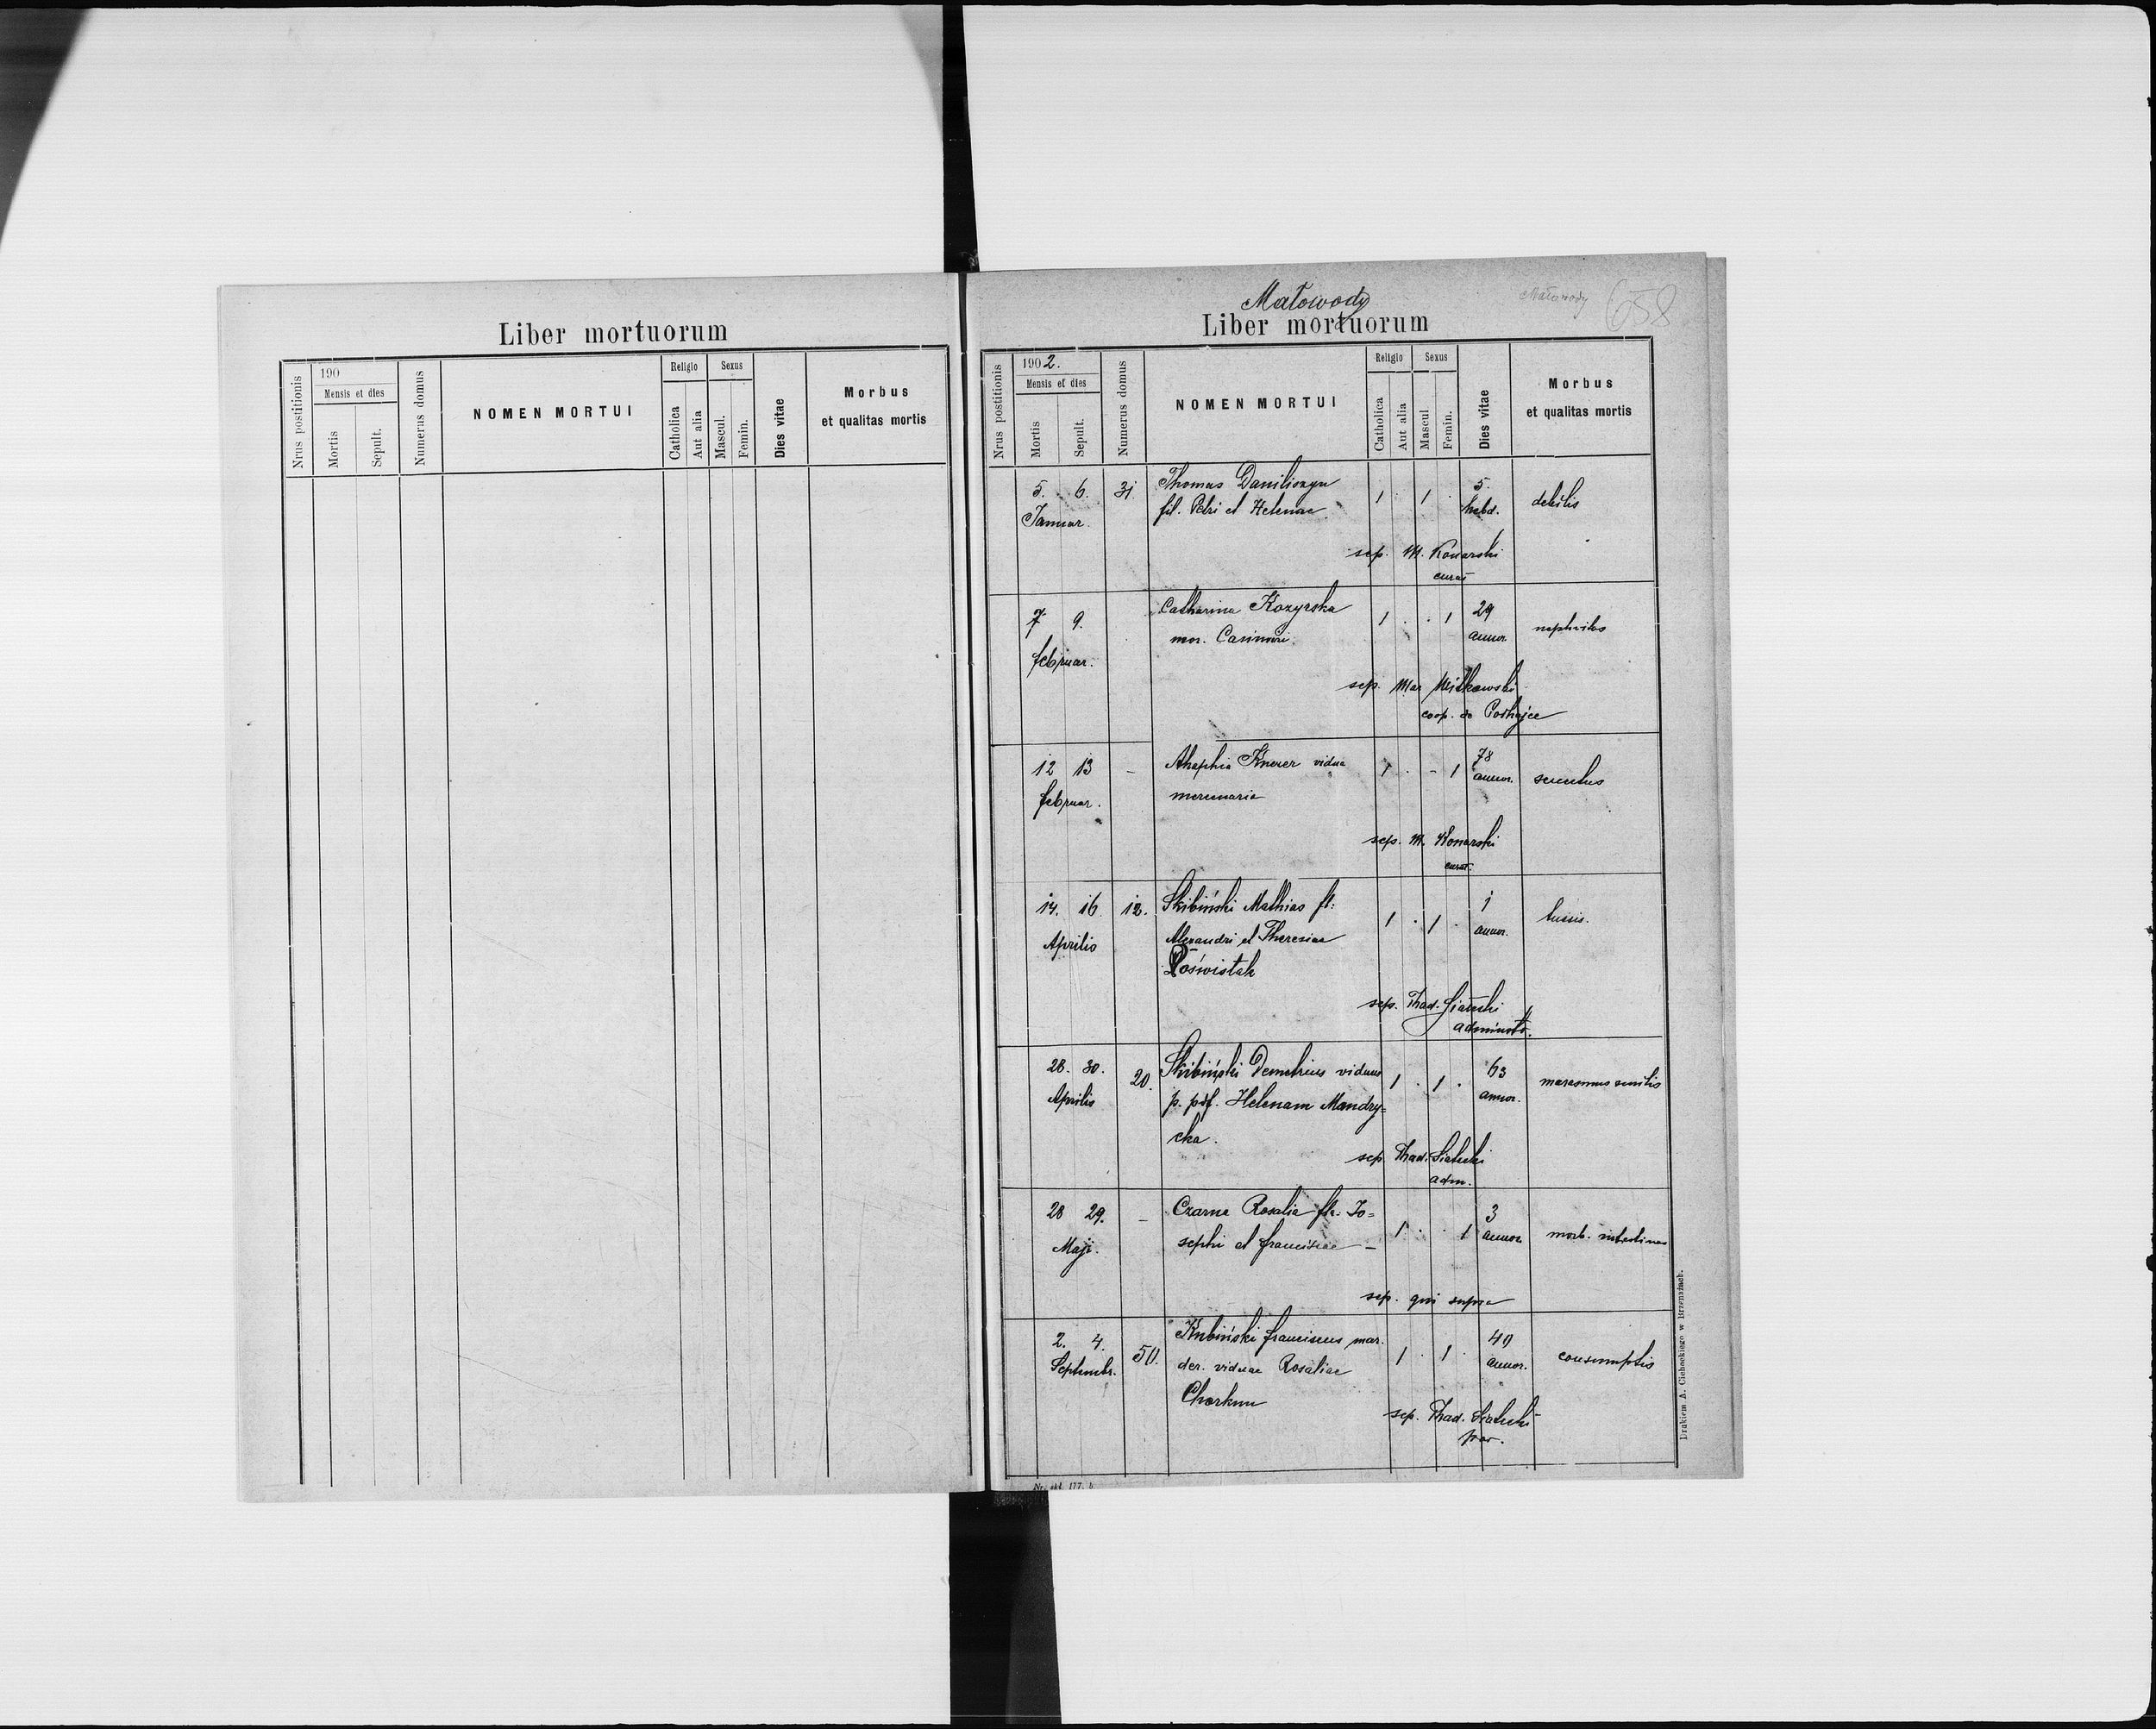 Liber mortuorum
Nrus postitionis
190
Mensis et dies
Mortis
Sepult.
Numerus domus
NOMEN MORTUI
Religio
Catholica
Aut alia
Sexus
Mascul.
Femin.
Dies vitae
Morbus
et qualitas mortis
Małowody
Małowody
658
Liber mortuorum
Nrus postitionis
1902.
Mensis et dies
Mortis
Sepult.
Numerus domus
NOMEN MORTUI
Religio
Catholica
Aut alia
Sexus
Mascul.
Femin.
Dies vitae
Morbus
et qualitas mortis
5. 6. 31. Thomas Daniliszyn 1 . 1 . 5. debilis
Januar. fil. Petri et Helenae hebd.
sep. M. Konarski
curat
7 9. Catharina Kozyrska 1 . . 1 29 nephritis
Februar. mor. Casimiri annor.
sep. Mar Witkowski
coop. de Podhajce
12 13 – Ahaphia Knerer vidua 1 . - 1 78 senectus
Februar. mercenaria annor.
sep. M. Konarski
curat.
14. 16 12. Skibiński Mathias fl: 1 . 1 . 1 tussis.
Aprilis Alexandri et Theresiae annor.
Poświstak
sep. Thad.
administr.
28. 30. 20. Skibiński Demetrius viduus 1 . 1 . 63 marasmus senilis
Aprilis p. pdf. Helenam Mandry= annor.
cka.
sep Thad.
adm.
28 29. – Czarna Rosalia fla: Jo= 1 . . 1 3 morb.
Maji. sephi et Franciscae – annor.
sep. qui supra
2. 4. 50. Kubiński Franciscus mar. 1 . 1 . 40 consumptis
Septembr. der. viduae Rosaliae annor.
Chorkun
sep. Thad.
par.
Drukiem A. Cichockiego w Brzeżanach.
177. b.